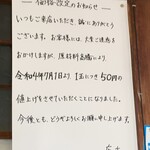 価格改定のお知らせ
いつもご来店いただき、誠にありがとう
ございます。お客様には、大変ご迷惑を
おかけしますが、原材料高騰により
令和4年7月1日より 1玉につき50円の
値上げをさせていただくことになりました。
今後とも、どうぞよろしくお願い申し上げます。
店主